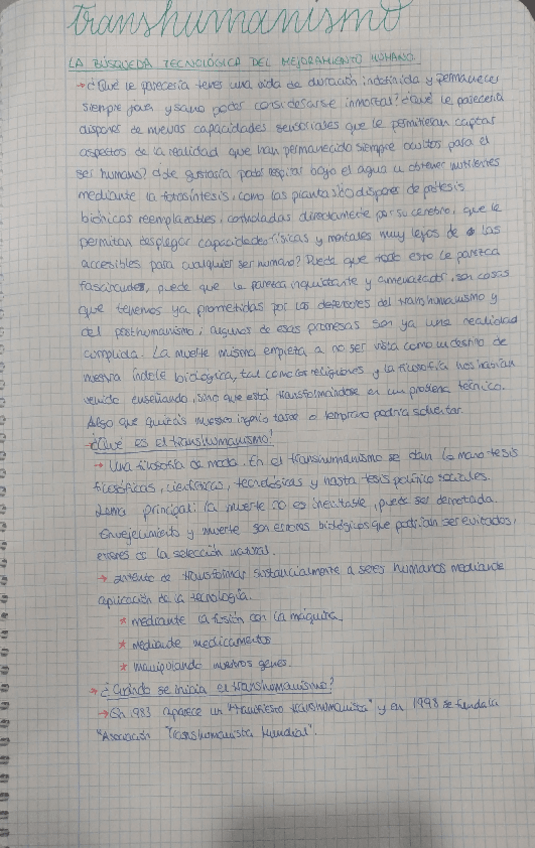 transhumanismo
LA BÚSQUEDA TECNOLÓGICA DEL MEJORAMIENTO HUMANO.
→ ¿Qué le parecería tener una vida de duración indefinida y permanecer
siempre joven y sano poder considerarse inmortal? ¿Qué le parecería
disponer de nuevas capacidades sensoriales que le permitieran captar
aspectos de la realidad que han permanecido siempre ocultos para el
ser humano? ¿Le gustaría poder respirar bajo el agua u obtener nutrientes
mediante la fotosíntesis, como las plantas? ¿O disponer de prótesis
biónicas reemplazables, controladas directamente por su cerebro, que le
permitan desplegar capacidades físicas y mentales muy lejos de las
accesibles para cualquier ser humano? Puede que todo esto le parezca
fascinante, puede que le parezca inquietante y amenazador, son cosas
que tenemos ya prometidas por los defensores del transhumanismo y
del posthumanismo, algunas de esas promesas son ya una realidad
cumplida. La muerte misma empieza a no ser vista como un destino de
nuestra índole biológica, tal como las religiones y la filosofía nos habían
venido enseñando, sino que está transformándose en un problema técnico.
Algo que quizás nuestro ingenio tarde o temprano podría solventar.
¿Qué es el transhumanismo?
→ Una filosofía de moda. En el transhumanismo se dan la mano tesis
filosóficas, científicas, tecnológicas y hasta tesis político sociales.
Lema principal: la muerte no es inevitable, puede ser derrotada.
Envejecimiento y muerte son errores biológicos que podrían ser evitados,
errores de la selección natural.
→ intento de transformar sustancialmente a seres humanos mediante
aplicación de la tecnología.
* mediante la fusión con la máquina
* mediante medicamentos
* manipulando nuestros genes.
→ ¿Cuándo se inicia el transhumanismo?
→ En 1983 aparece un "Manifiesto transhumanista" y en 1998 se funda la
"Asociación Transhumanista Mundial".